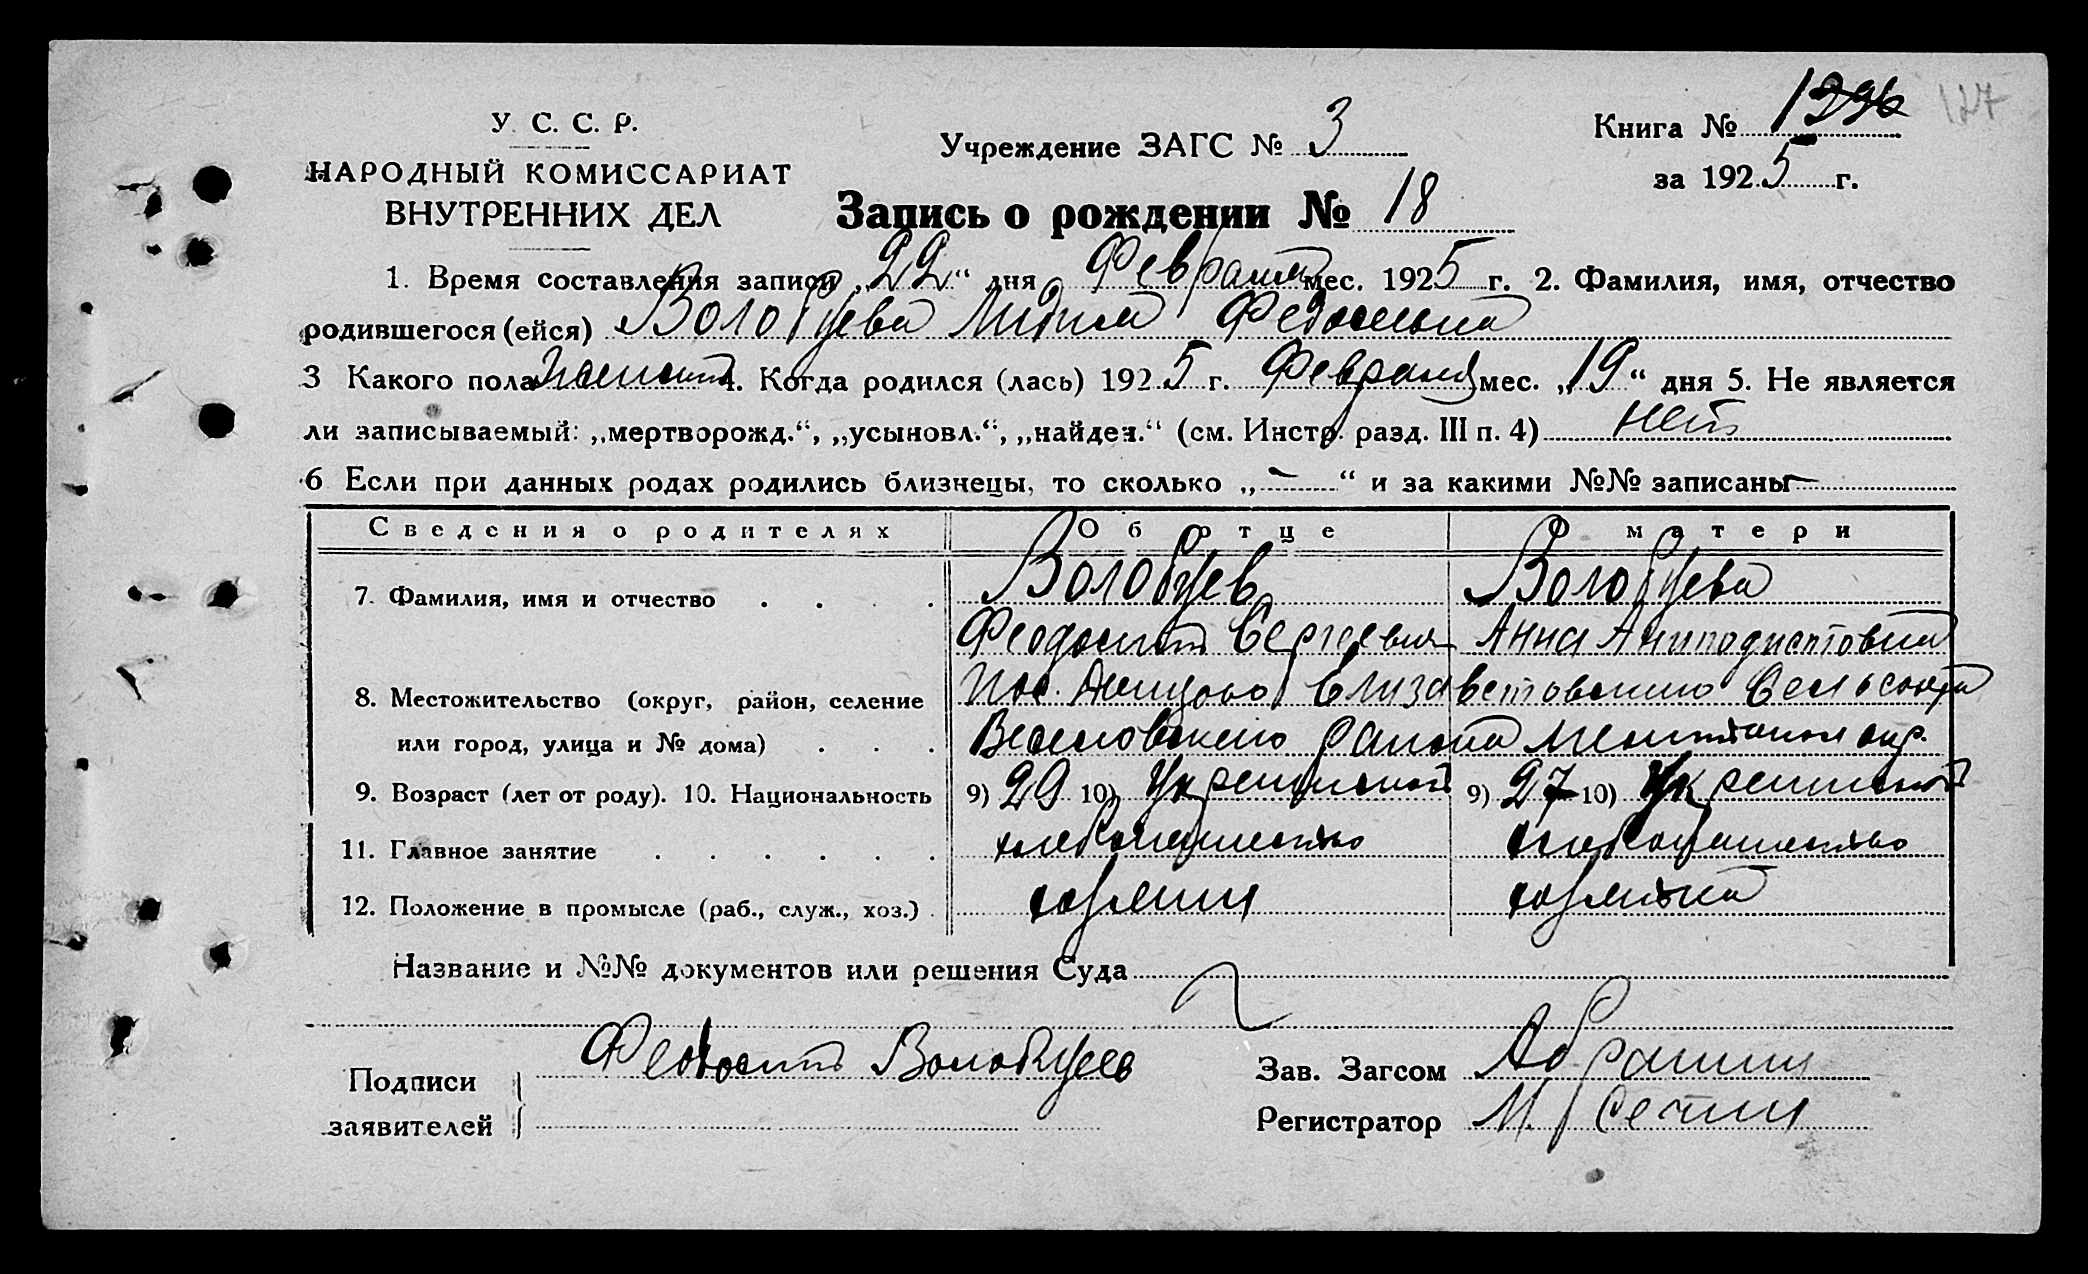 У. С. С. Р.
НАРОДНЫЙ КОМИССАРИАТ
ВНУТРЕННИХ ДЕЛ
Учреждение ЗАГС № 3
Книга № 127
за 1925 г.
Запись о рождении № 18
1. Время составления записи „22“ дня Февраля мес. 1925 г. 2. Фамилия, имя, отчество
родившегося (ейся) Волобуева Лидия Федосьевна
3 Какого пола женский 4. Когда родился (лась) 1925 г. Февраля мес. „19“ дня 5. Не является
ли записываемый: „мертворожд.“, „усыновл.“, „найден.“ (см. Инстр. разд. III п. 4) нет
6 Если при данных родах родились близнецы, то сколько „-“ и за какими №№ записаны -
Сведения о родителях Об отце О матери
7. Фамилия, имя и отчество Волобуев Волобуева
Феодосий Сергеевич Анна
8. Местожительство (округ, район, селение пос. Елизаветовского Сельсовета
или город, улица и № дома) Веселовского района Мелитопол окр.
9. Возраст (лет от роду). 10. Национальность 9) 29 10) Украинской 9) 27 10) Украинской
11. Главное занятие хлебопашество хлебопашество
12. Положение в промысле (раб., служ., хоз.) хозяин хозяйка
Название и №№ документов или решения Суда
Подписи
заявителей
Феодосий Волобуев
Зав. Загсом
Регистратор М.